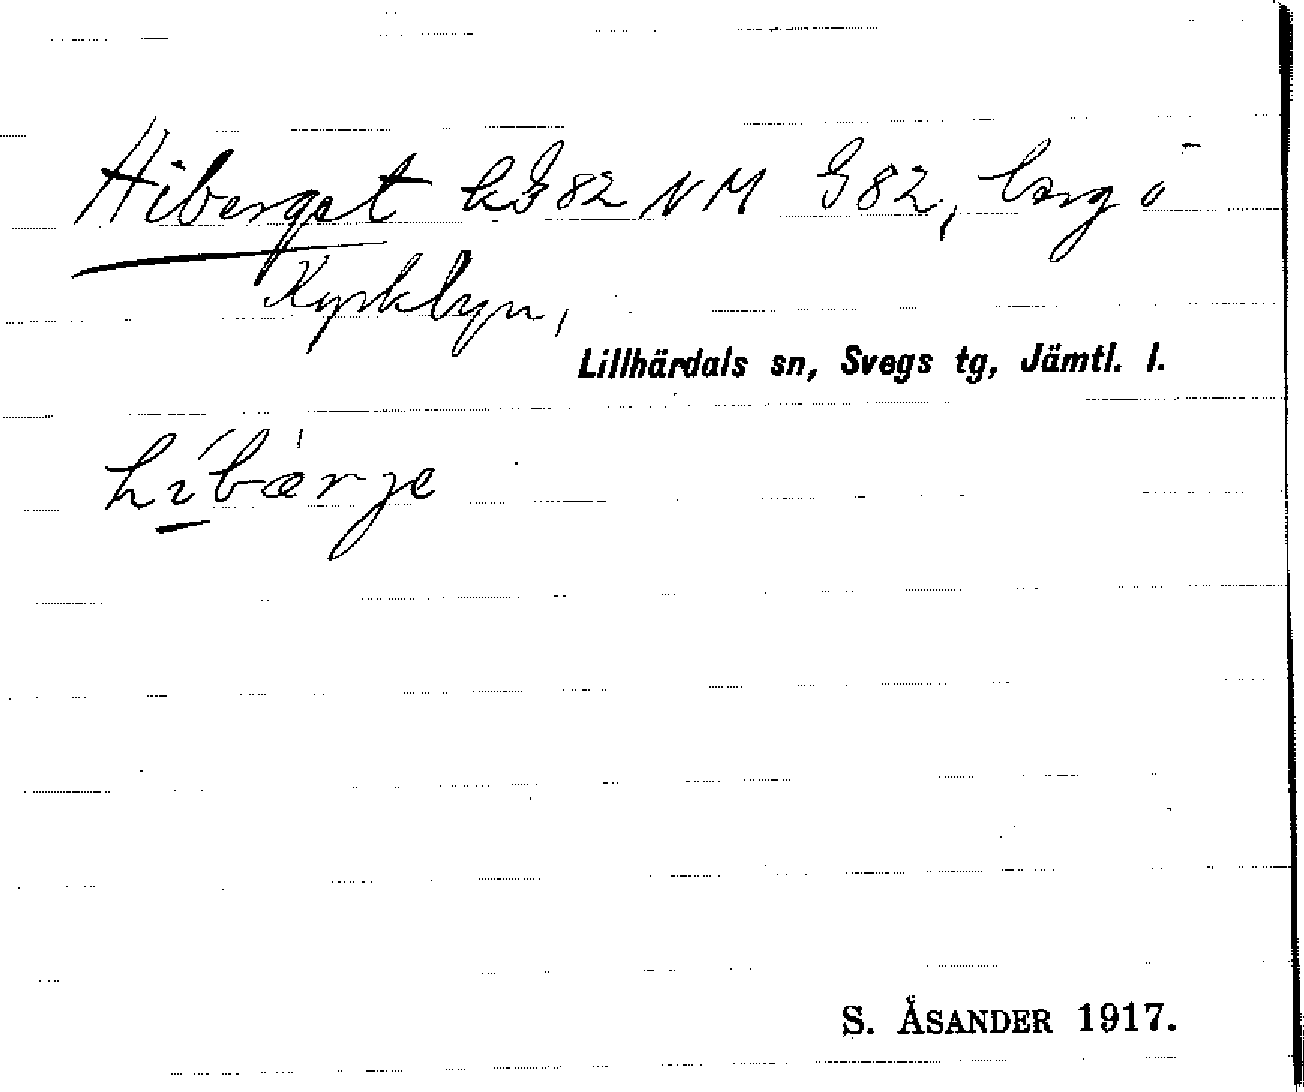 Hiberget kG82 NM G82, berg i
Kyrkbyn,
Lillhärdals sn, Svegs tg, Jämtl. l.
híbærje
S. ÅSANDER 1917.